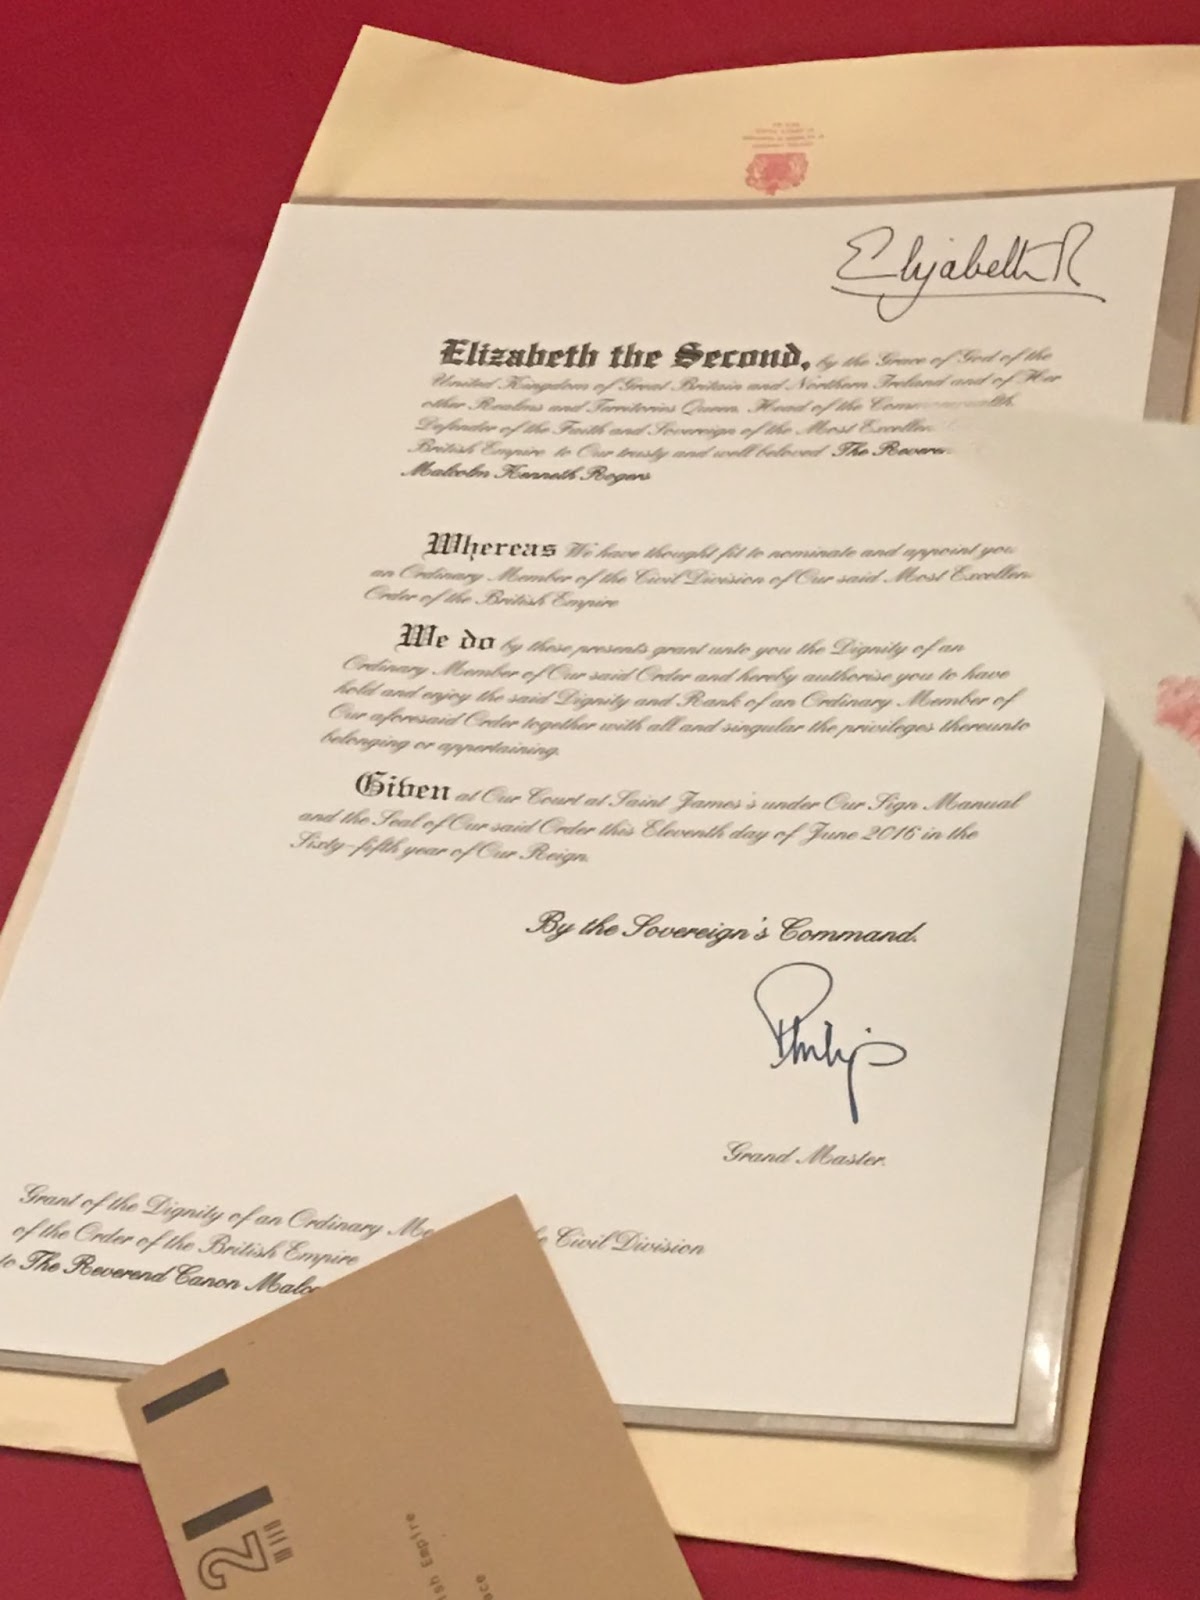 Elizabeth R
Elizabeth the Second, by the Grace of God of the
United Kingdom of Great Britain and Northern Ireland and of Her
other Realms and Territories Queen, Head of the Commonwealth,
Defender of the Faith and Sovereign of the Most Excellen
British Empire to Our trusty and well beloved The Reveren
Malcolm Kenneth Rogers
Whereas We have thought fit to nominate and appoint you
an Ordinary Member of the Civil Division of Our said Most Excellen
Order of the British Empire
We do by these presents grant unto you the Dignity of an
Ordinary Member of Our said Order and hereby authorise you to have
hold and enjoy the said Dignity and Rank of an Ordinary Member of
Our aforesaid Order together with all and singular the privileges thereunto
belonging or appertaining.
Given at Our Court at Saint James's under Our Sign Manual
and the Seal of Our said Order this Eleventh day of June 2016 in the
Sixty-fifth year of Our Reign.
By the Sovereign's Command.
Philip
Grand Master.
Grant of the Dignity of an Ordinary Me e Civil Division
of the Order of the British Empire
to The Reverend Canon Malco
2
sh Empire
ace